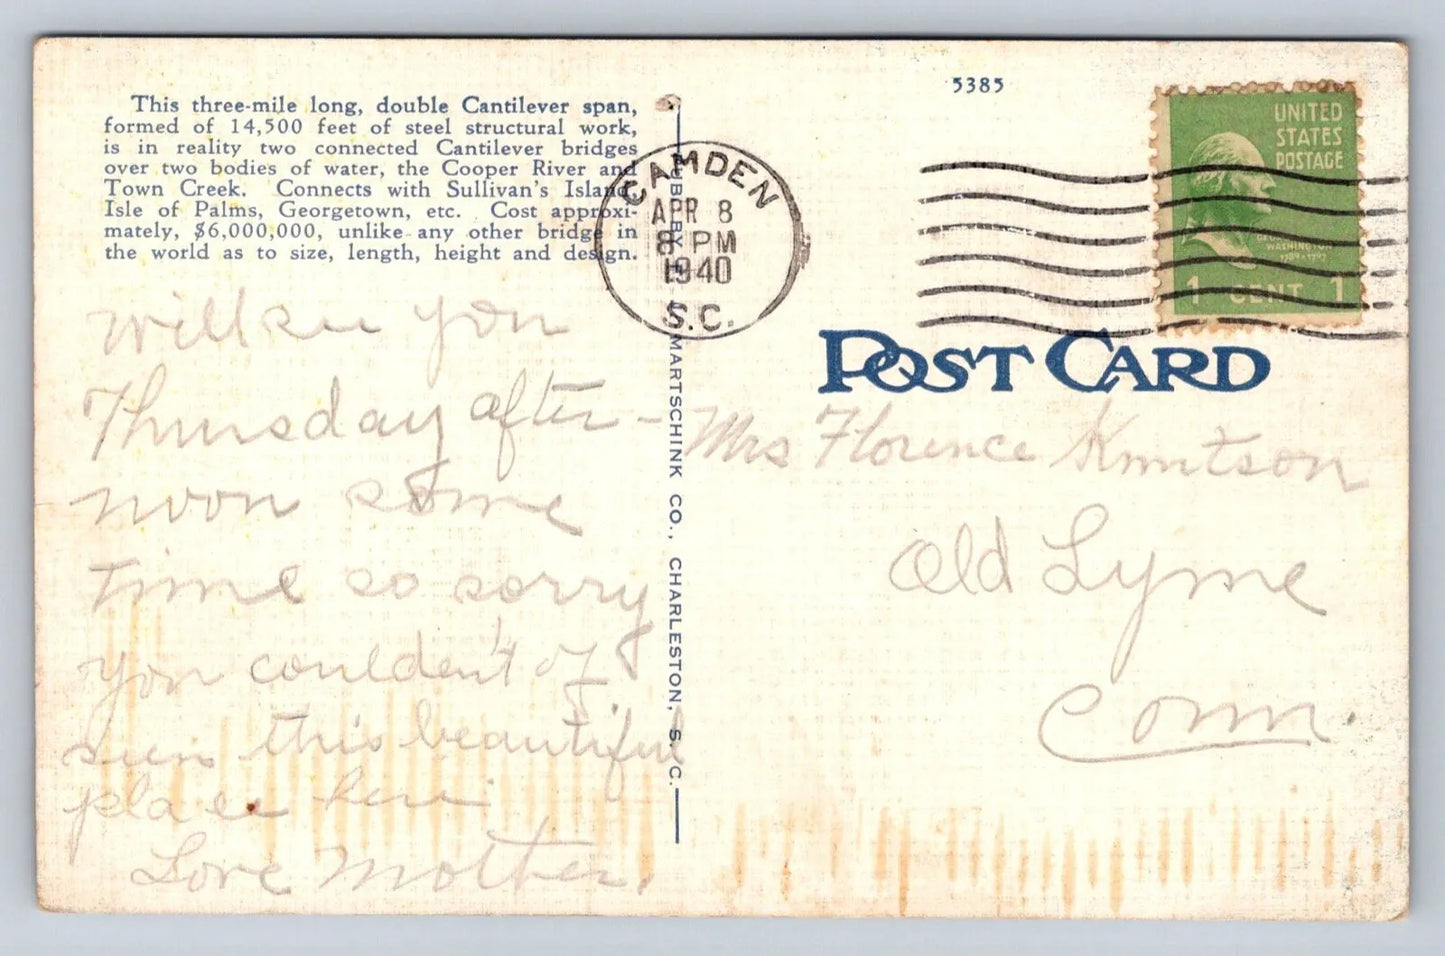 This three-mile long, double Cantilever span,
formed of 14,500 feet of steel structural work,
is in reality two connected Cantilever bridges
over two bodies of water, the Cooper River and
Town Creek. Connects with Sullivan's Island,
Isle of Palms, Georgetown, etc. Cost approxi-
mately, $6,000,000, unlike any other bridge in
the world as to size, length, height and design.
will see you
Thursday after-
noon some
time so sorry
you couldent of
seen this beautiful
place here
Love Mother.
MARTSCHINK CO., CHARLESTON, S. C.
5385
CAMDEN
APR 8
8 PM
1940
S.C.
UNITED
STATES
POSTAGE
WASHINGTON
1789-1797
1 CENT 1
POST CARD
Mrs Florence Knutson
Old Lyme
Conn.